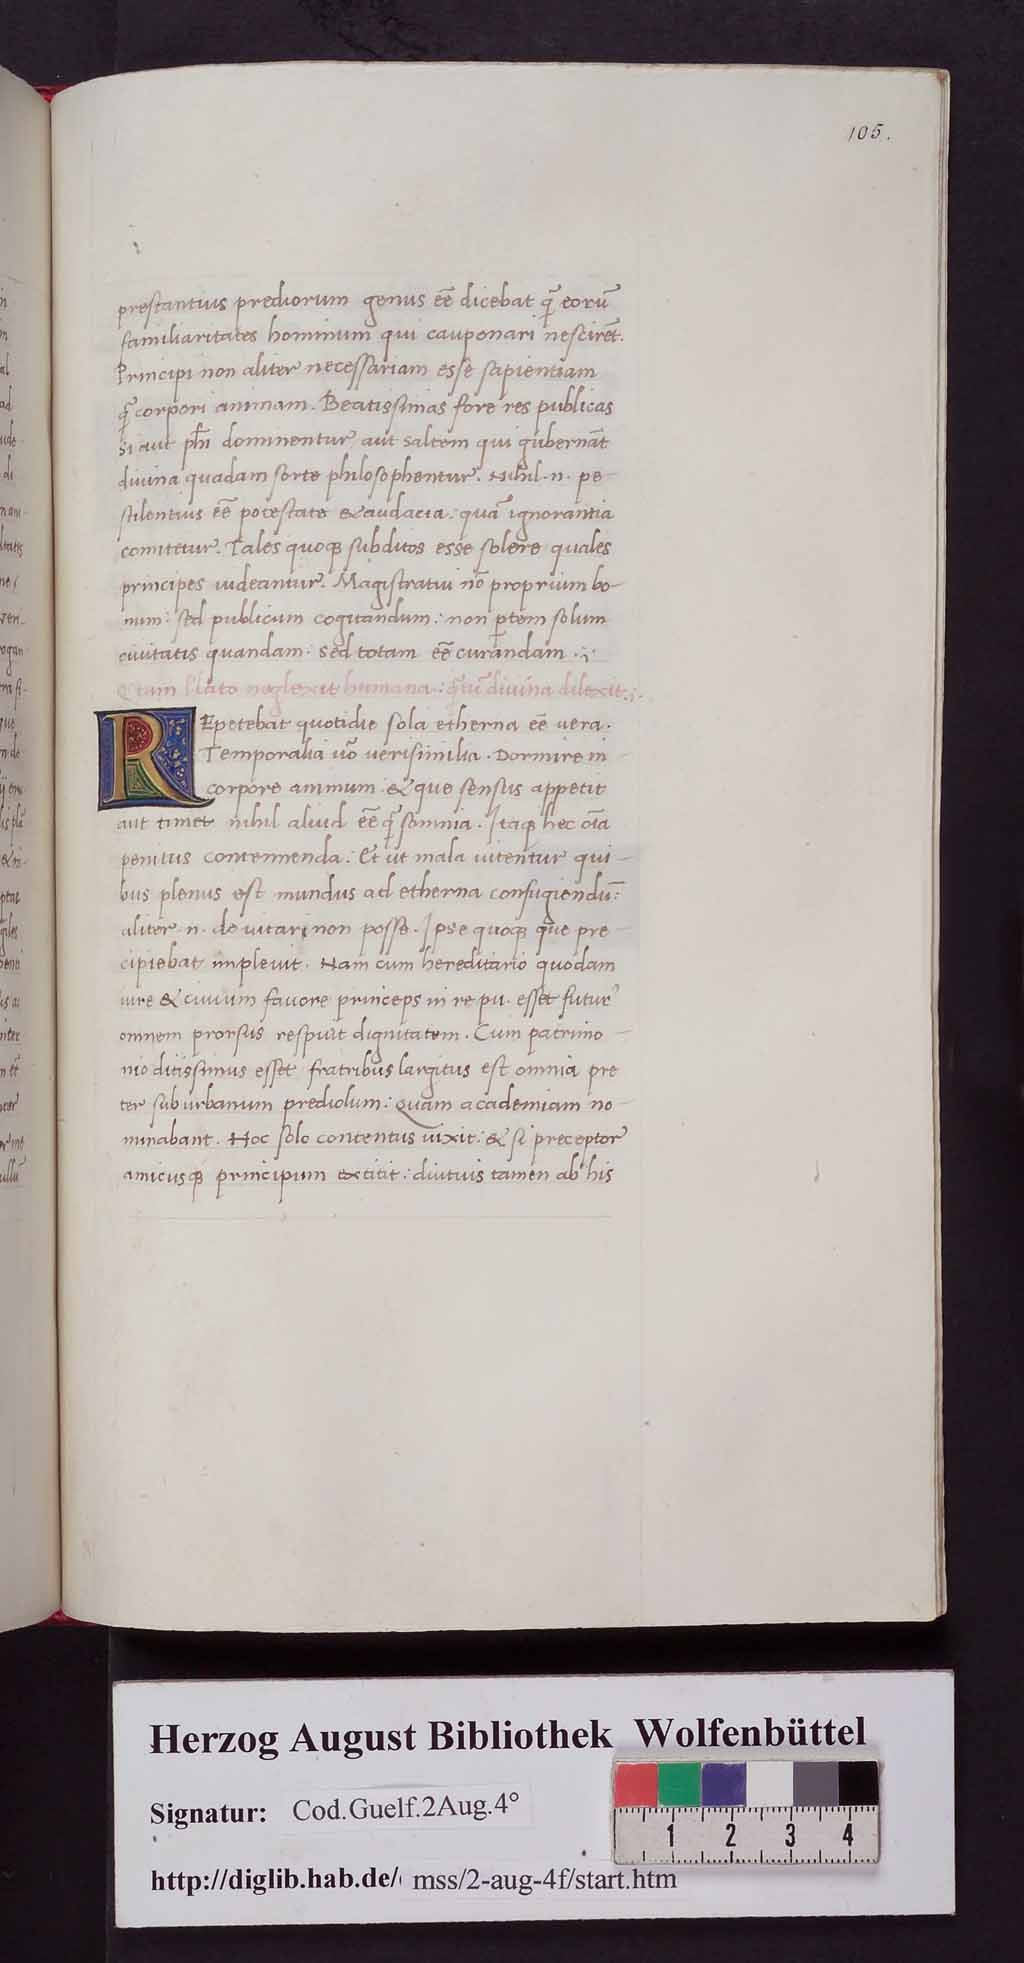 105.
prestantius prediorum genus eē dicebat q̄ eorū
familiaritates hominum qui cauponari nescirēt.
Principi non aliter necessariam esse sapientiam
q̄ corpori animam. Beatissimas fore res publicas
si aut phī dominentur aut saltem qui gubernāt
diuina quadam sorte philosophentur. Nihil .n. pe-
stilentius eē potestate & audacia: quā ignorantia
comitetur. Tales quoq; subditos esse solere quales
principes uideantur. Magistratui nō proprium bo-
num: sed publicum cogitandum: non ꝑtem solum
ciuitatis quandam: sed totam eē curandam .;
Quam Plato neglexit humana: q̄tū diuina dilexit.;.
REpetebat quotidie sola etherna eē vera.
Temporalia ūo verisimilia. Dormire in
corpore animum & que sensus appetit
aut timet nihil aliud eē q̄ somnia. Itaq; hec oīa
penitus contemnenda: Et ut mala uitentur qui-
bus plenus est mundus ad etherna confugiendū:
aliter .n. de uitari non posse. Ipse quoq; que pre-
cipiebat impleuit. Nam cum hereditario quodam
iure & ciuium fauore princeps in re pu. esset futur᾿
omnem prorsus respuit dignitatem. Cum patrimo-
nio ditissimus esset fratribus largitus est omnia pre
ter suburbanum prediolum: Quam academiam no-
minabant. Hoc solo contentus uixit: & si preceptor
amicusq; principum extitit: diutius tamen ab his
Herzog August Bibliothek Wolfenbüttel
Signatur: Cod.Guelf.2Aug.4°
http://diglib.hab.de/ mss/2-aug-4f/start.htm
1 2 3 4